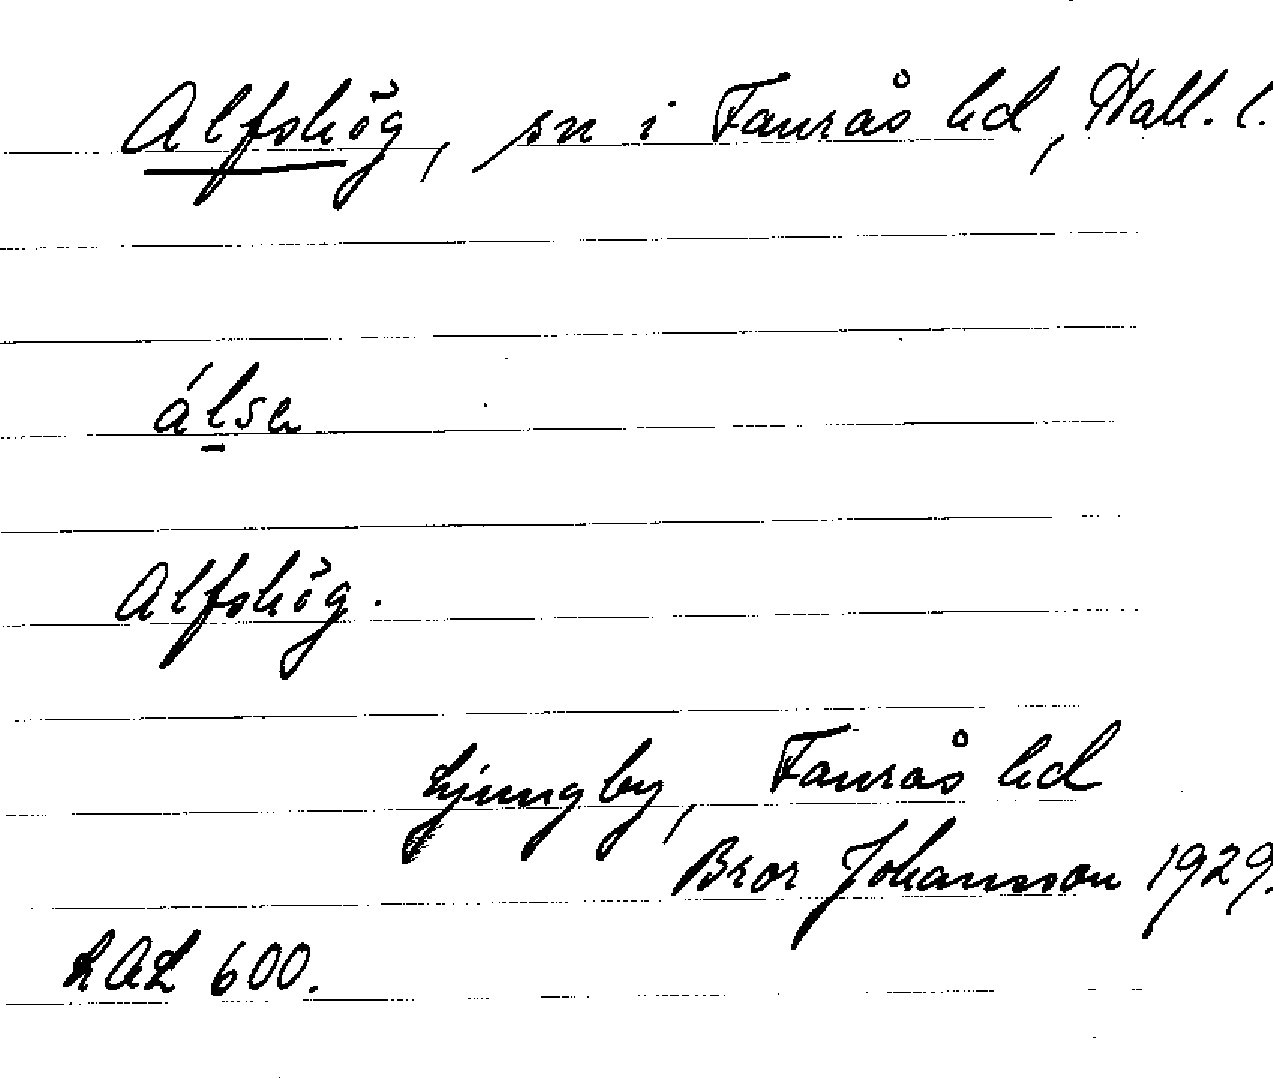 Alfshög, sn i Faurås hd, Hall. l.
álsa
Alfshög.
Ljungby, Faurås hd
Bror Johansson 1929.
LAL 600.